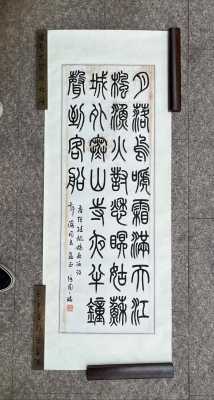 月落烏啼霜滿天江
楓漁火對愁眠姑蘇
城外寒山寺夜半鐘
聲到客船
唐張繼楓橋夜泊詩